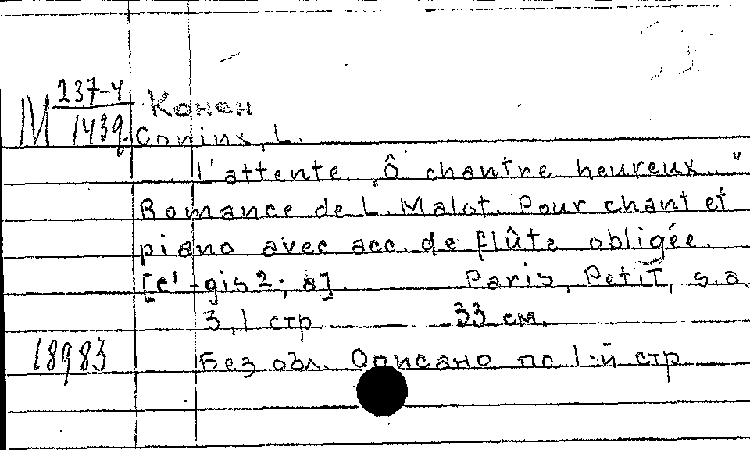 M 237-4
1439
Конен
Coninx, L.
L'attente „Ô chantre heureux..."
Romance de L. Malot. Pour chant et
piano avec acc. de flûte obligée.
[e¹-gis2; a] Paris, Petit, s.a.
3,1 стр 33 см.
18983 Без обл. Описано по 1-й стр